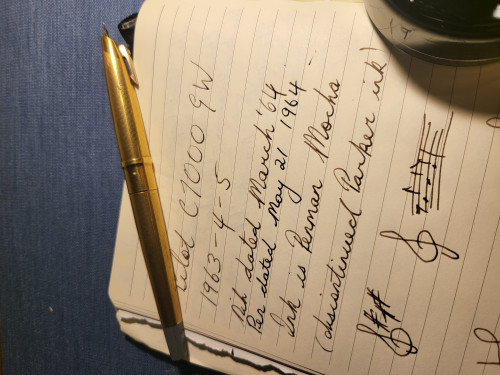 ilot C1000 GW
1963-4-5
Nib dated March '64
Pen dated May 21 1964
Ink is Penman Mocha
(discontinued Parker ink)